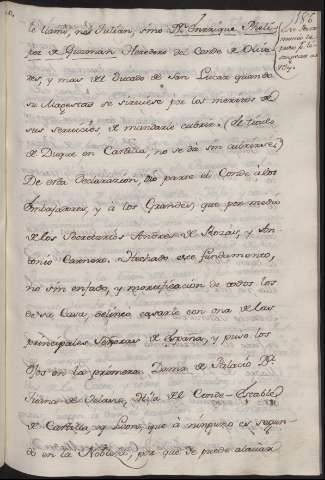 le llamó, no Julian, sino Dn. Enrrique Phelip
pez de Guzman Heredero del Conde de Oliva
res, y mas del Ducado de San Lucar quando
su Magestad se sirviese por los meritos de
sus servicios de mandarle cubrir. (el titulo
de Duque en Castilla, no se da sin cubrirse)
De esta Declarazion, dió parte el Conde á los
Embajadores, y á los Grandes, que por medio
de los Secretarios Andres de Rozas, y An-
tonio Carnero. Hechado este fundamento,
no sin enfado, y mortificazion de todos los
de su Casa, delineó casarle con una de las
principales Señoras de España, y puso los
Ojos en la primera Dama de Palacio Da.
Juana de Velasco, Hija del Conde-Estable
de Castilla, y Leon, que á ninguno es segun-
do en la Nobleza, por que se puede alavar
186